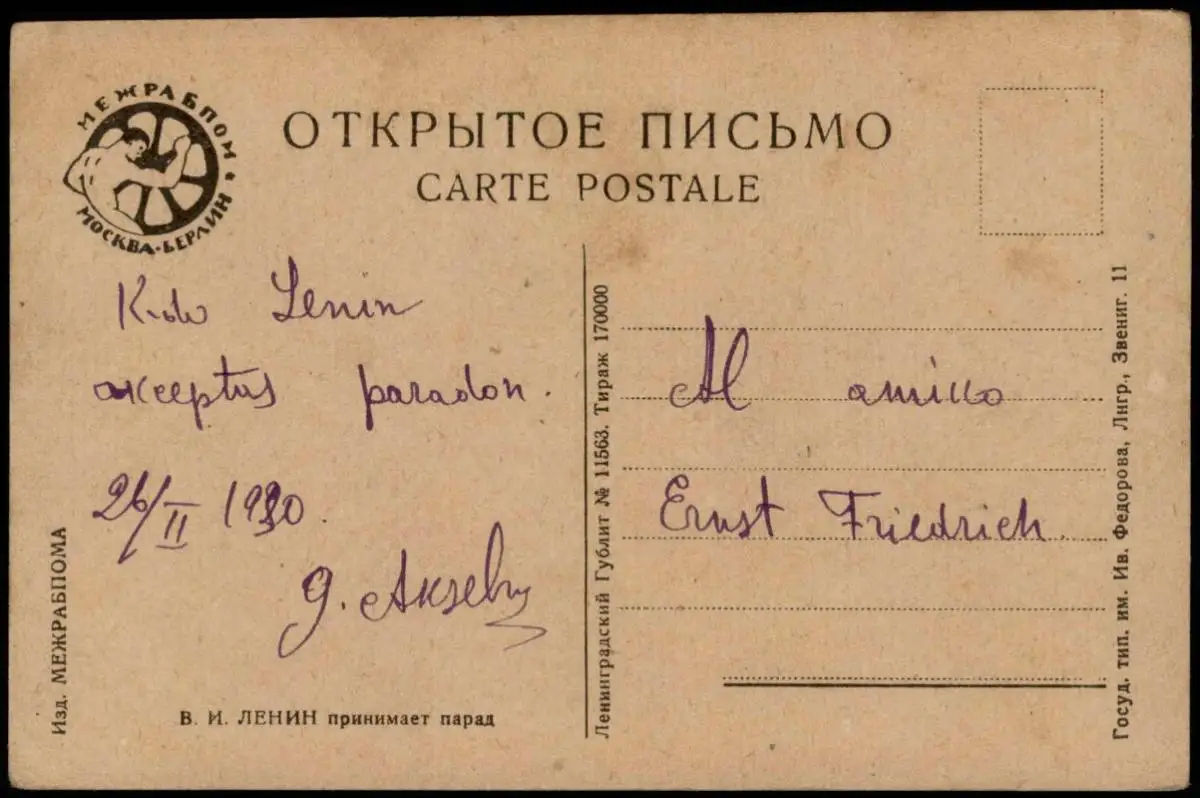 МЕЖРАБПОМ
МОСКВА-БЕРЛИН
ОТКРЫТОЕ ПИСЬМО
CARTE POSTALE
K-do Lenin
akceptas paradon.
26/II 1930.
Al amiko
Ernst Friedrich.
В. И. ЛЕНИН принимает парад
Изд. МЕЖРАБПОМА
Ленинградский Гублит № 11563. Тираж 170000
Госуд. тип. им. Ив. Федорова, Лнгр., Звениг. 11